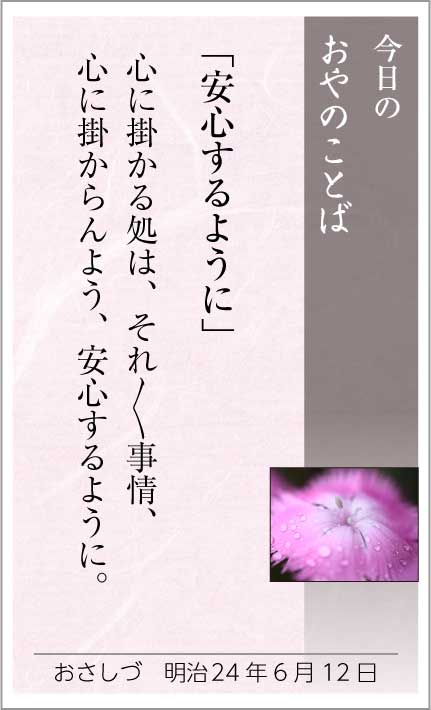 今日の
おやのことば
「安心するように」
心に掛かる処は、それ〳〵事情、
心に掛からんよう、安心するように。
おさしづ　明治24年6月12日